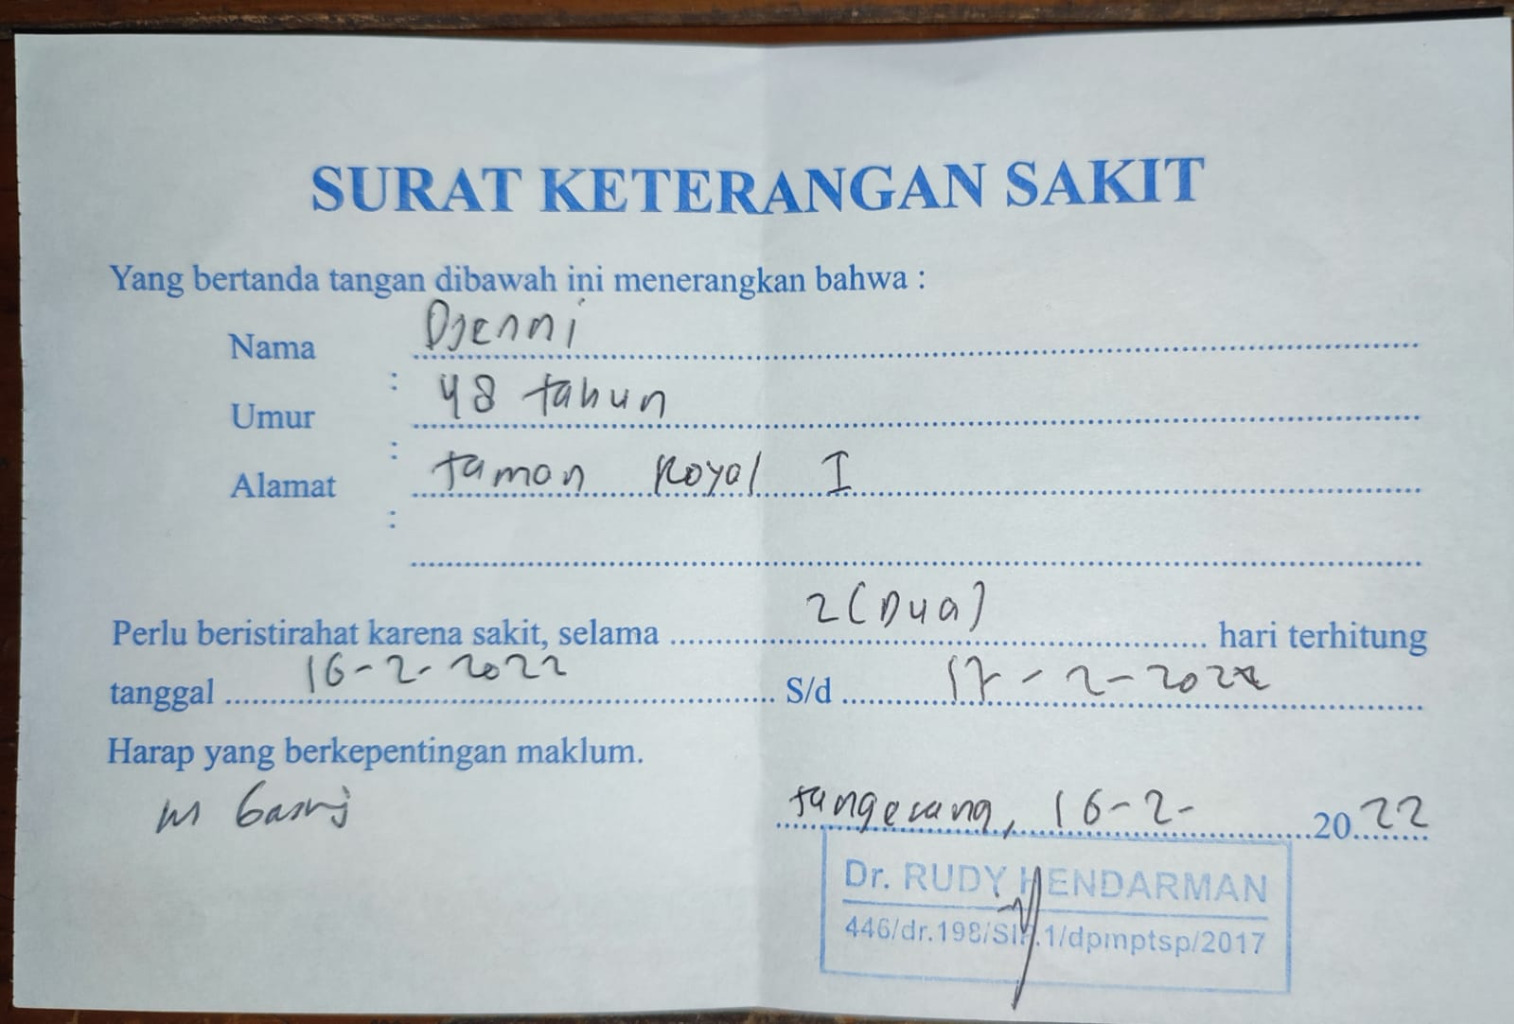 SURAT KETERANGAN SAKIT
Yang bertanda tangan dibawah ini menerangkan bahwa :
Nama : Djenni
Umur : 48 tahun
Alamat : Taman Royal I
2 (Dua)
Perlu beristirahat karena sakit, selama hari terhitung
tanggal 16-2-2022 S/d 17-2-2022
Harap yang berkepentingan maklum.
Tangerang, 16-2- 2022
Dr. RUDY HENDARMAN
446/dr.198/SIP.1/dpmptsp/2017